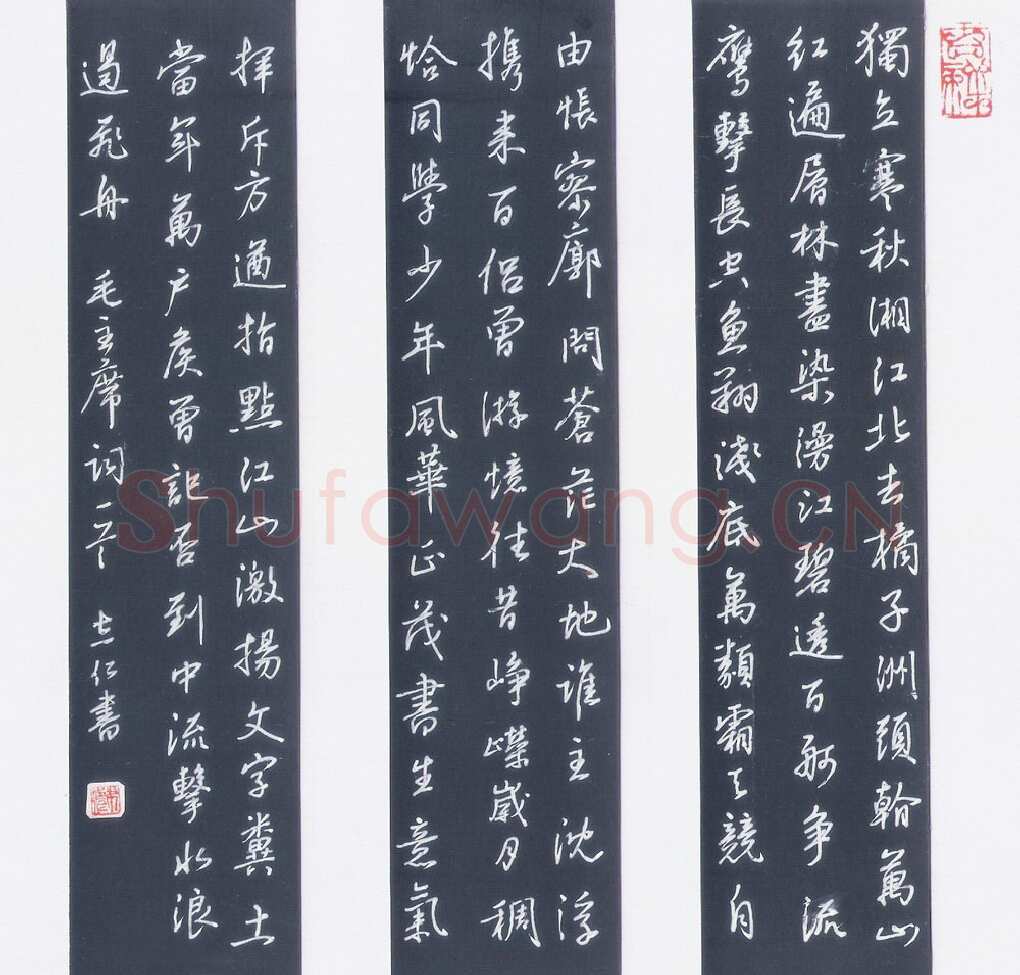 獨立寒秋湘江北去橘子洲頭看萬山
紅遍層林盡染漫江碧透百舸争流
鷹擊長空魚翔淺底萬類霜天競自
由悵寥廓問蒼茫大地誰主沈浮
携来百侣曾游憶往昔崢嶸歲月稠
恰同學少年風華正茂書生意氣
揮斥方遒指點江山激揚文字糞土
當年萬户侯曾記否到中流擊水浪
遏飛舟 毛主席詞一首 志仁書
Shufawang.CN